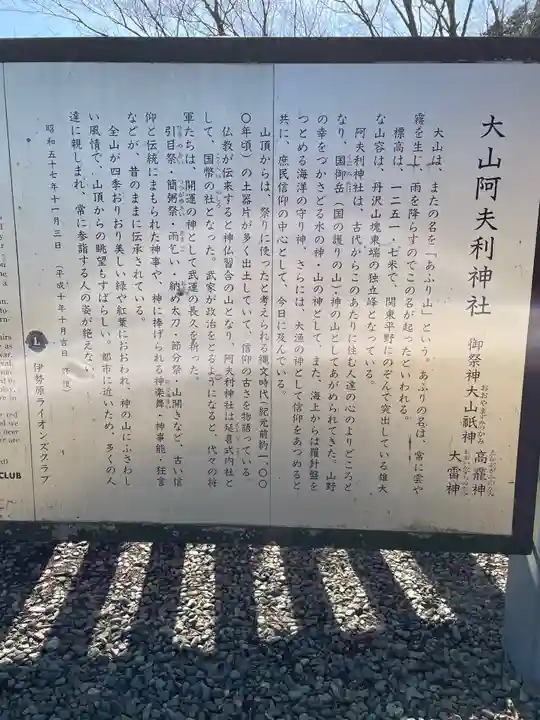 大山阿夫利神社
御祭神
大山祇神
おおやまずみのかみ
高龗神
大雷神
大山は、またの名を「あふり山」という。あふりの名は、常に雲や
霧を生じ、雨を降らすのでこの名が起ったといわれる。
標高は、一二五一・七米で、関東平野にのぞんで突出している雄大
な山容は、丹沢山塊東端の独立峰となっている。
阿夫利神社は、古代からこのあたりに住む人達の心のよりどころと
なり、国御岳(国の護りの山)・神の山としてあがめられてきた。山野
の幸をつかさどる水の神・山の神として、また、海上からは羅針盤を
つとめる海洋の守り神、さらには、大漁の神として信仰をあつめると
共に、庶民信仰の中心として、今日に及んでいる。
山頂からは、祭りに使ったと考えられる縄文時代(紀元前約一、〇〇
〇年頃)の土器片が多く出土していて、信仰の古さを物語っている
仏教が伝来すると神仏習合の山となり、阿夫利神社は延喜式内社と
して、国幣の社となった。武家が政治をとるようになると、代々の将
軍たちは、開運の神として武運の長久を祈った。
引目祭・筒粥祭・雨乞い・納め太刀・節分祭・山開きなど、古い信
仰と伝統にまもられた神事や、神に捧げられる神楽舞・神事能・狂言
などが、昔のままに伝承されている。
全山が四季おりおり美しい緑や紅葉におおわれ、神の山にふさわし
い風情で、山頂からの眺望もすばらしい。都市に近いため、多くの人
達に親しまれ、常に参詣する人の姿が絶えない。
昭和五十七年十一月三日
(平成十年十月吉日 修復)
L
伊勢原ライオンズクラブ
CLUB